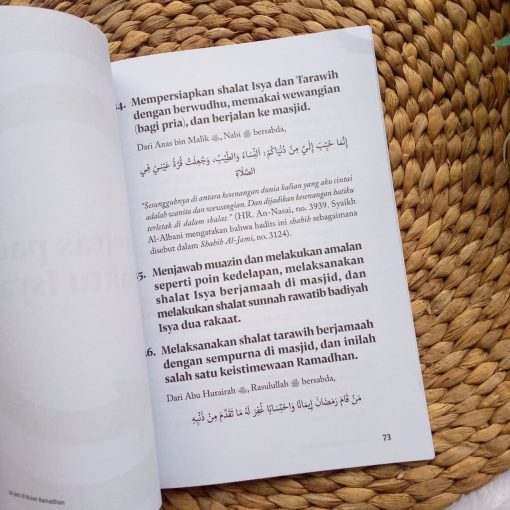 4. Mempersiapkan shalat Isya dan Tarawih
dengan berwudhu, memakai wewangian
(bagi pria), dan berjalan ke masjid.
Dari Anas bin Malik ﷺ, Nabi ﷺ bersabda,
إِنَّمَا حُبِّبَ إِلَيَّ مِنْ دُنْيَاكُمْ: اَلنِّسَاءُ وَالطِّيْبُ، وَجُعِلَتْ قُرَّةُ عَيْنِيْ فِي
الصَّلَاةِ
"Sesungguhnya di antara kesenangan dunia kalian yang aku cintai
adalah wanita dan wewangian. Dan dijadikan kesenangan hatiku
terletak di dalam shalat." (HR. An-Nasai, no. 3939. Syaikh
Al-Albani mengatakan bahwa hadits ini shahih sebagaimana
disebut dalam Shahih Al-Jami, no. 3124).
5. Menjawab muazin dan melakukan amalan
seperti poin kedelapan, melaksanakan
shalat Isya berjamaah di masjid, dan
melakukan shalat sunnah rawatib badiyah
Isya dua rakaat.
6. Melaksanakan shalat tarawih berjamaah
dengan sempurna di masjid, dan inilah
salah satu keistimewaan Ramadhan.
Dari Abu Hurairah, Rasulullah ﷺ bersabda,
مَنْ قَامَ رَمَضَانَ إِيمَانًا وَاحْتِسَابًا غُفِرَ لَهُ مَا تَقَدَّمَ مِنْ ذَنْبِهِ
73
24 Jam di Bulan Ramadhan